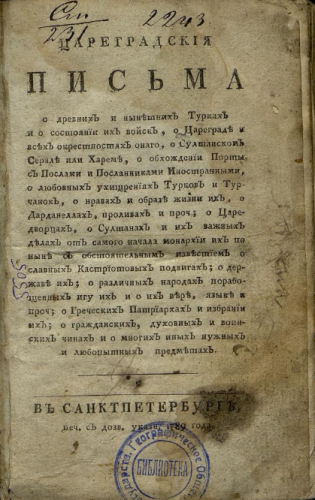 Ст 2243
231
ЦАРЕГРАДСКІЯ
ПИСЬМА
о древнихъ и нынѣшнихъ Туркахъ
и о состояніи ихъ войскъ, о Цареградѣ и
всѣхъ окрестностяхъ онаго, о Султанскомъ
Сералѣ или Харемѣ, о обхожденіи Порты
съ Послами и Посланниками Иностранными,
о любовныхъ ухищреніяхъ Турковъ и Тур-
чанокъ, о нравахъ и образѣ жизни ихъ, о
Дарданеллахъ, проливахъ и проч; о Царе-
дворцахъ, о Султанахъ и ихъ важныхъ
дѣлахъ отъ самаго начала монархіи ихъ по
нынѣ съ обстоятельнымъ извѣстіемъ о
славныхъ Кастріотовыхъ подвигахъ; о дер-
жавѣ ихъ; о различныхъ народахъ порабо-
щенныхъ игу ихъ и о ихъ вѣрѣ, языкѣ и
проч; о Греческихъ Патріархахъ и избраніи
ихъ; о гражданскихъ, духовныхъ и воин-
скихъ чинахъ и о многихъ иныхъ нужныхъ
и любопытныхъ предметахъ.
ВЪ САНКТПЕТЕРБУРГѢ,
печ. съ дозв. указн. 1789 года.
Государств. Географическое Общ
БИБЛІОТЕКА